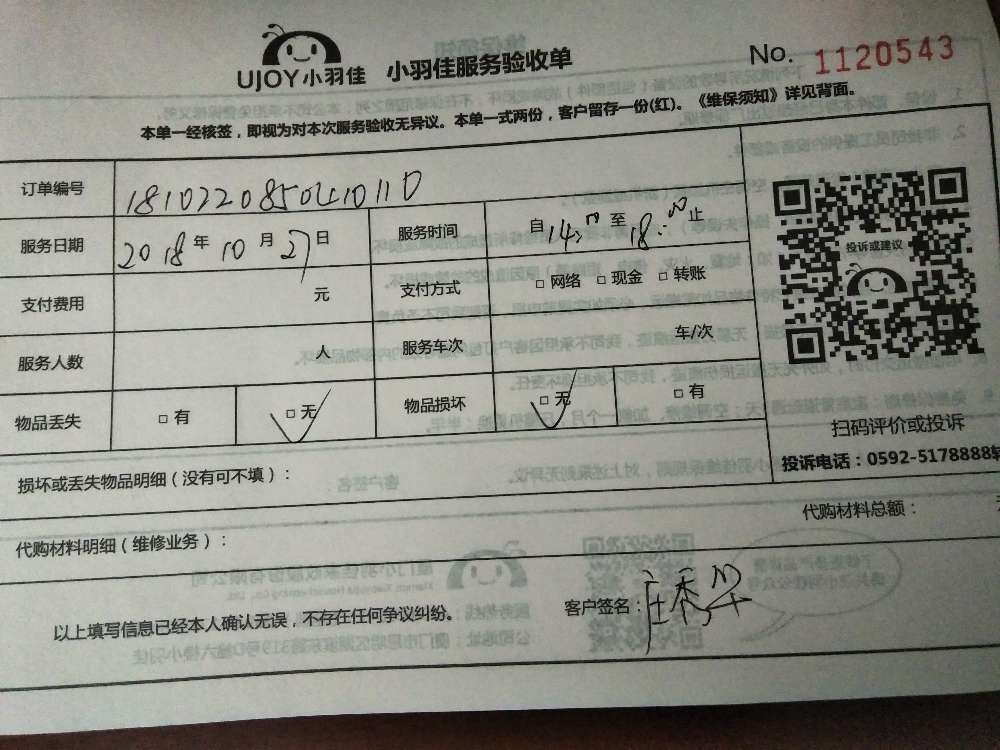 UJOY小羽佳 小羽佳服务验收单 No. 1120543
本单一经核签，即视为对本次服务验收无异议。本单一式两份，客户留存一份(红)。《维保须知》详见背面。
订单编号
服务日期 2018年10月27日 服务时间 自14:00至18:00止
支付费用 元 支付方式 □网络 □现金 □转账
服务人数 人 服务车次 车/次
物品丢失 □有 □无 物品损坏 □无 □有
投诉或建议
扫码评价或投诉
投诉电话：0592-5178888转
损坏或丢失物品明细（没有可不填）：
代购材料明细（维修业务）： 代购材料总额：
以上填写信息已经本人确认无误，不存在任何争议纠纷。 客户签名：